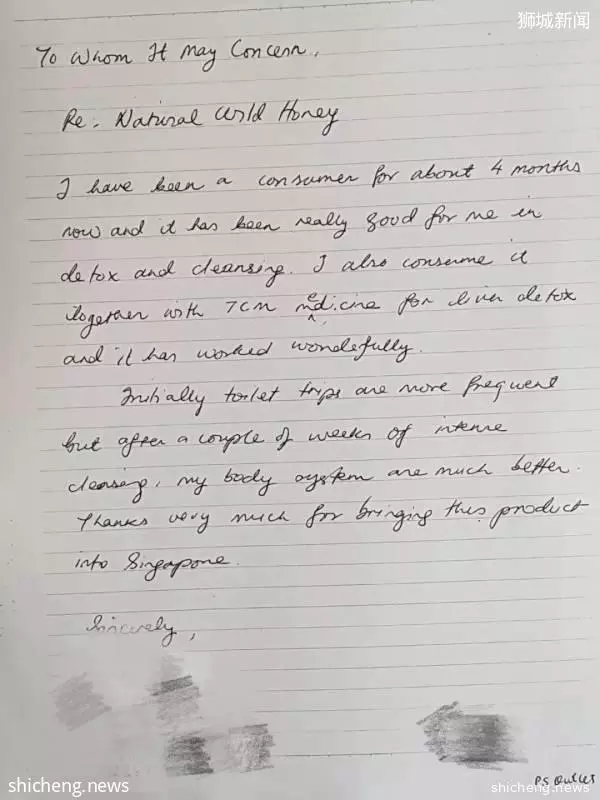 狮城新闻
To Whom It May Concern,
Re: Natural Wild Honey
I have been a consumer for about 4 months
now and it has been really good for me in
detox and cleansing. I also consume it
together with TCM medicine for liver detox
and it has worked wondefully.
Initially toilet trips are more frequent
but after a couple of weeks of intense
cleansing, my body system are much better.
Thanks very much for bringing this product
into Singapore.
Sincerely,
P.S
shicheng.news
shicheng.news